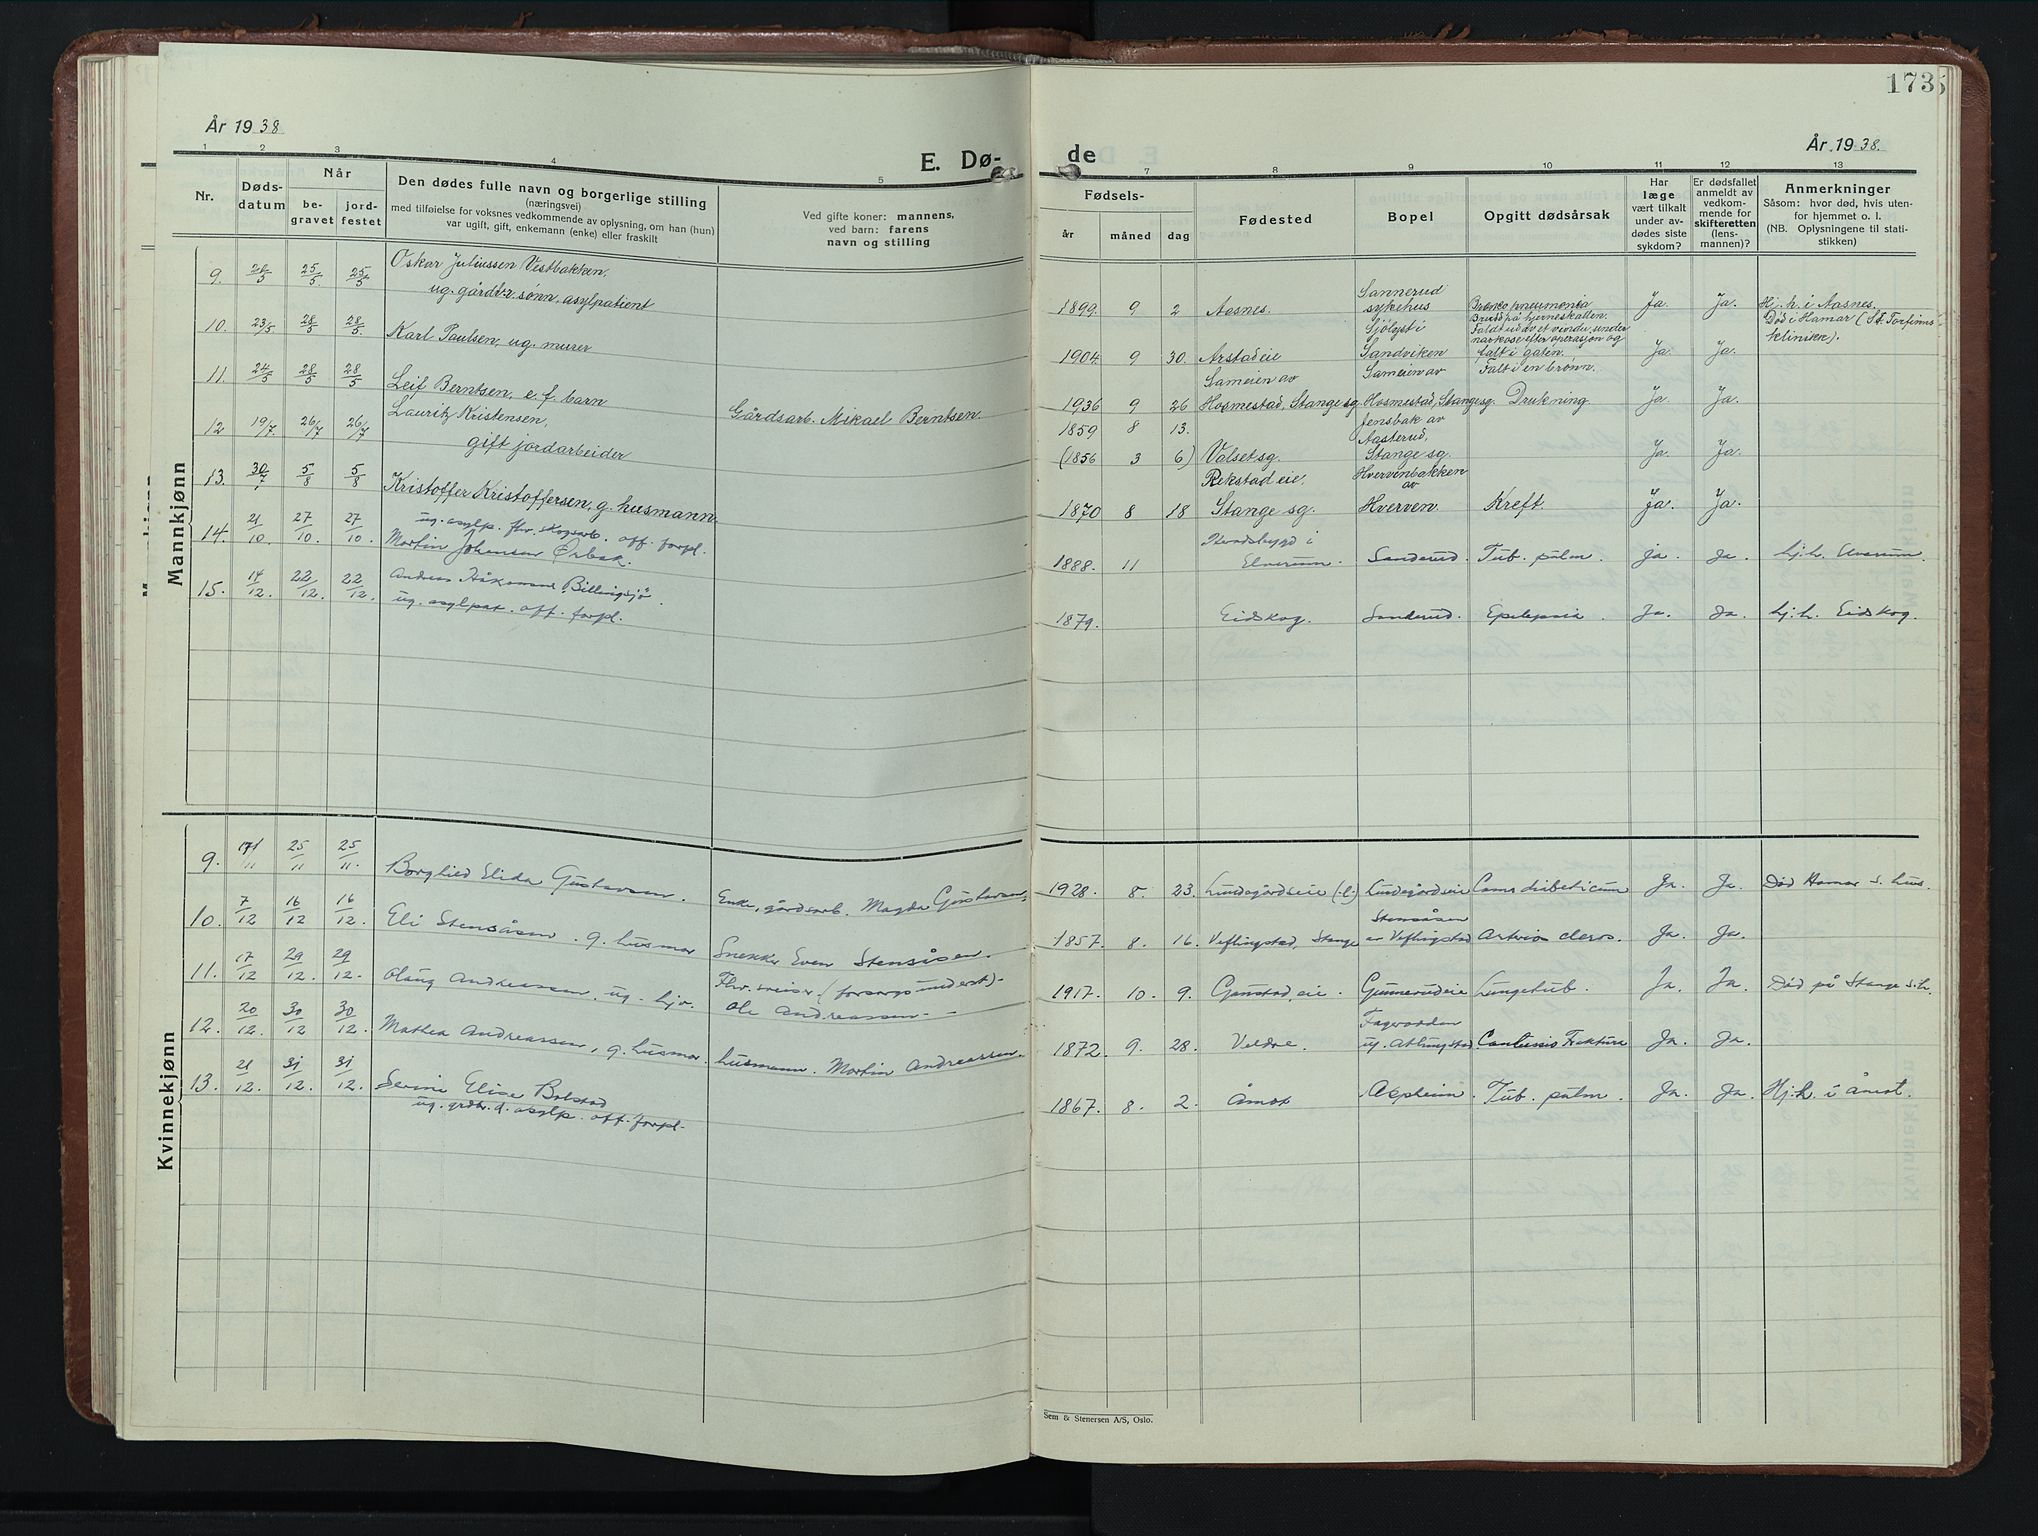 173
År 1938
År 1938.
E. Dø-
de
1 2 3 4 5 7 8 9 10 11 12 13
Nr.
Døds-
datum
Når
be-
gravet
jord-
festet
Den dødes fulle navn og borgerlige stilling
(næringsvei)
med tilføielse for voksnes vedkommende av oplysning, om han (hun)
var ugift, gift, enkemann (enke) eller fraskilt
Ved gifte koner: mannens,
ved barn: farens
navn og stilling
Fødsels-
år
måned
dag
Fødested
Bopel
Opgitt dødsårsak
Har
læge
vært tilkalt
under av-
dødes siste
sykdom?
Er dødsfallet
anmeldt av
vedkom-
mende for
skifteretten
(lens-
mannen)?
Anmerkninger
Såsom: hvor død, hvis uten-
for hjemmet o. l.
(NB. Oplysningene til stati-
stikken)
Mannkjønn
9. 25/5 25/5 Oskar Juliussen Vestbakken,
ug. gårdbr. sønn, asylpatient
1899. 9 2 Aasnes. Sannerud
sykehus Bronco pneumonia Ja. Ja. Hj. h. i Aasnes.
10. 23/5 28/5 28/5. Karl Paulsen, ug. murer
1904. 9 30. Arstadeie Sjølyst i
Sandviken Brudd på hjerneskallen.
Faldt ud av et vindu, under
narkose efter operasjon og
falt i gaten. Ja. Ja. Død i Hamar (St. Torfinns
klinikk).
11. 24/5 28/5 28/5 Leif Berntsen, e. f. barn Gårdsarb. Mikael Berntsen.
1936 9 26 Sameien av
Hosmestad, Stange sg. Sameien av
Hosmestad, Stange sg. Falt i en brønn.
Drukning Ja. Ja.
12 19/7. 26/7 26/7 Lauritz Kristensen,
gift jordarbeider
1859 8 13.
(1856 3 6) Valset sg. Jensbak av
Aasterud,
Stange sg. Ja. Ja.
13. 30/7 5/8 5/8 Kristoffer Kristoffersen, g. husmann.
1870 8 18 Rekstad eie.
Stange sg. Hvervenbakken
av
Hverven. Kreft. Ja. Ja.
14. 21/10 27/10. 27/10. ug. asylp. fhv. skogsarb. off. forpl.
Martin Johansen Ørbak.
1888. 11 Heradsbygd i
Elverum. Sanderud. Tub. pulm. ja. Ja. hj. h. Elverum.
15. 14/12. 22/12. 22/12. Andreas Håkonsen Billingsjø.
ug. asylpat. off. forpl.
1879. Eidskog. Sanderud. Epilepsia. Ja. Ja. hj. h. Eidskog.
Kvinnekjønn
9. 25/11 25/11. Borghild Elida Gustavsen. Enke, gårdsarb. Magda Gustavsen.
1928. 5. 23. Lindegårdseie Coma diabeticum Ja. Ja. Død Hamar s. hus.
10. 7/12 16/12 16/12. Eli Stensåsen. g. husmor Snekker Even Stensåsen.
1857. 8. 16. Veflingstad, Stange Stensåsen
av Veflingstad Ja. Ja.
11. 17/12 29/12. 29/12. Olaug Andreassen. ug. hjv. Fhv. sveiser (forsorgsunderst)-
Ole Andreassen--
1917. 10. 9. Gaustad eie. Gunnerudeie Lungetub. Ja. Ja. Død på Stange s.h.
12. 20/12. 30/12 30/12. Mathea Andreassen, g. husmor. husmann. Martin Andreassen.
1872. 9. 28. Veldre. Ja. Ja.
13. 21/12. 31/12. 31/12. Serine Elise Bolstad
ug. grdbr. d. asylp. off. forpl.
1867. 8. 2. Åmot Aspheim. Tub. pulm. Ja. Ja. Hj. h. i Åmot.
Sem & Stenersen A/S, Oslo.